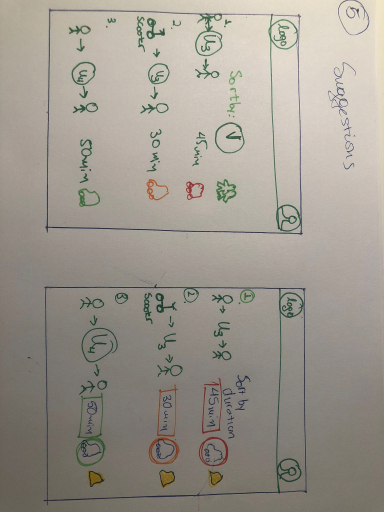 5
Suggestions
logo
Sort by:
1.
U3
45 min
2.
Scooter
U3
30 min
3.
U4
50 min
logo
Sort by
duration
1
U3
45 min
2
Scooter
U3
30 min
3
U4
50 min